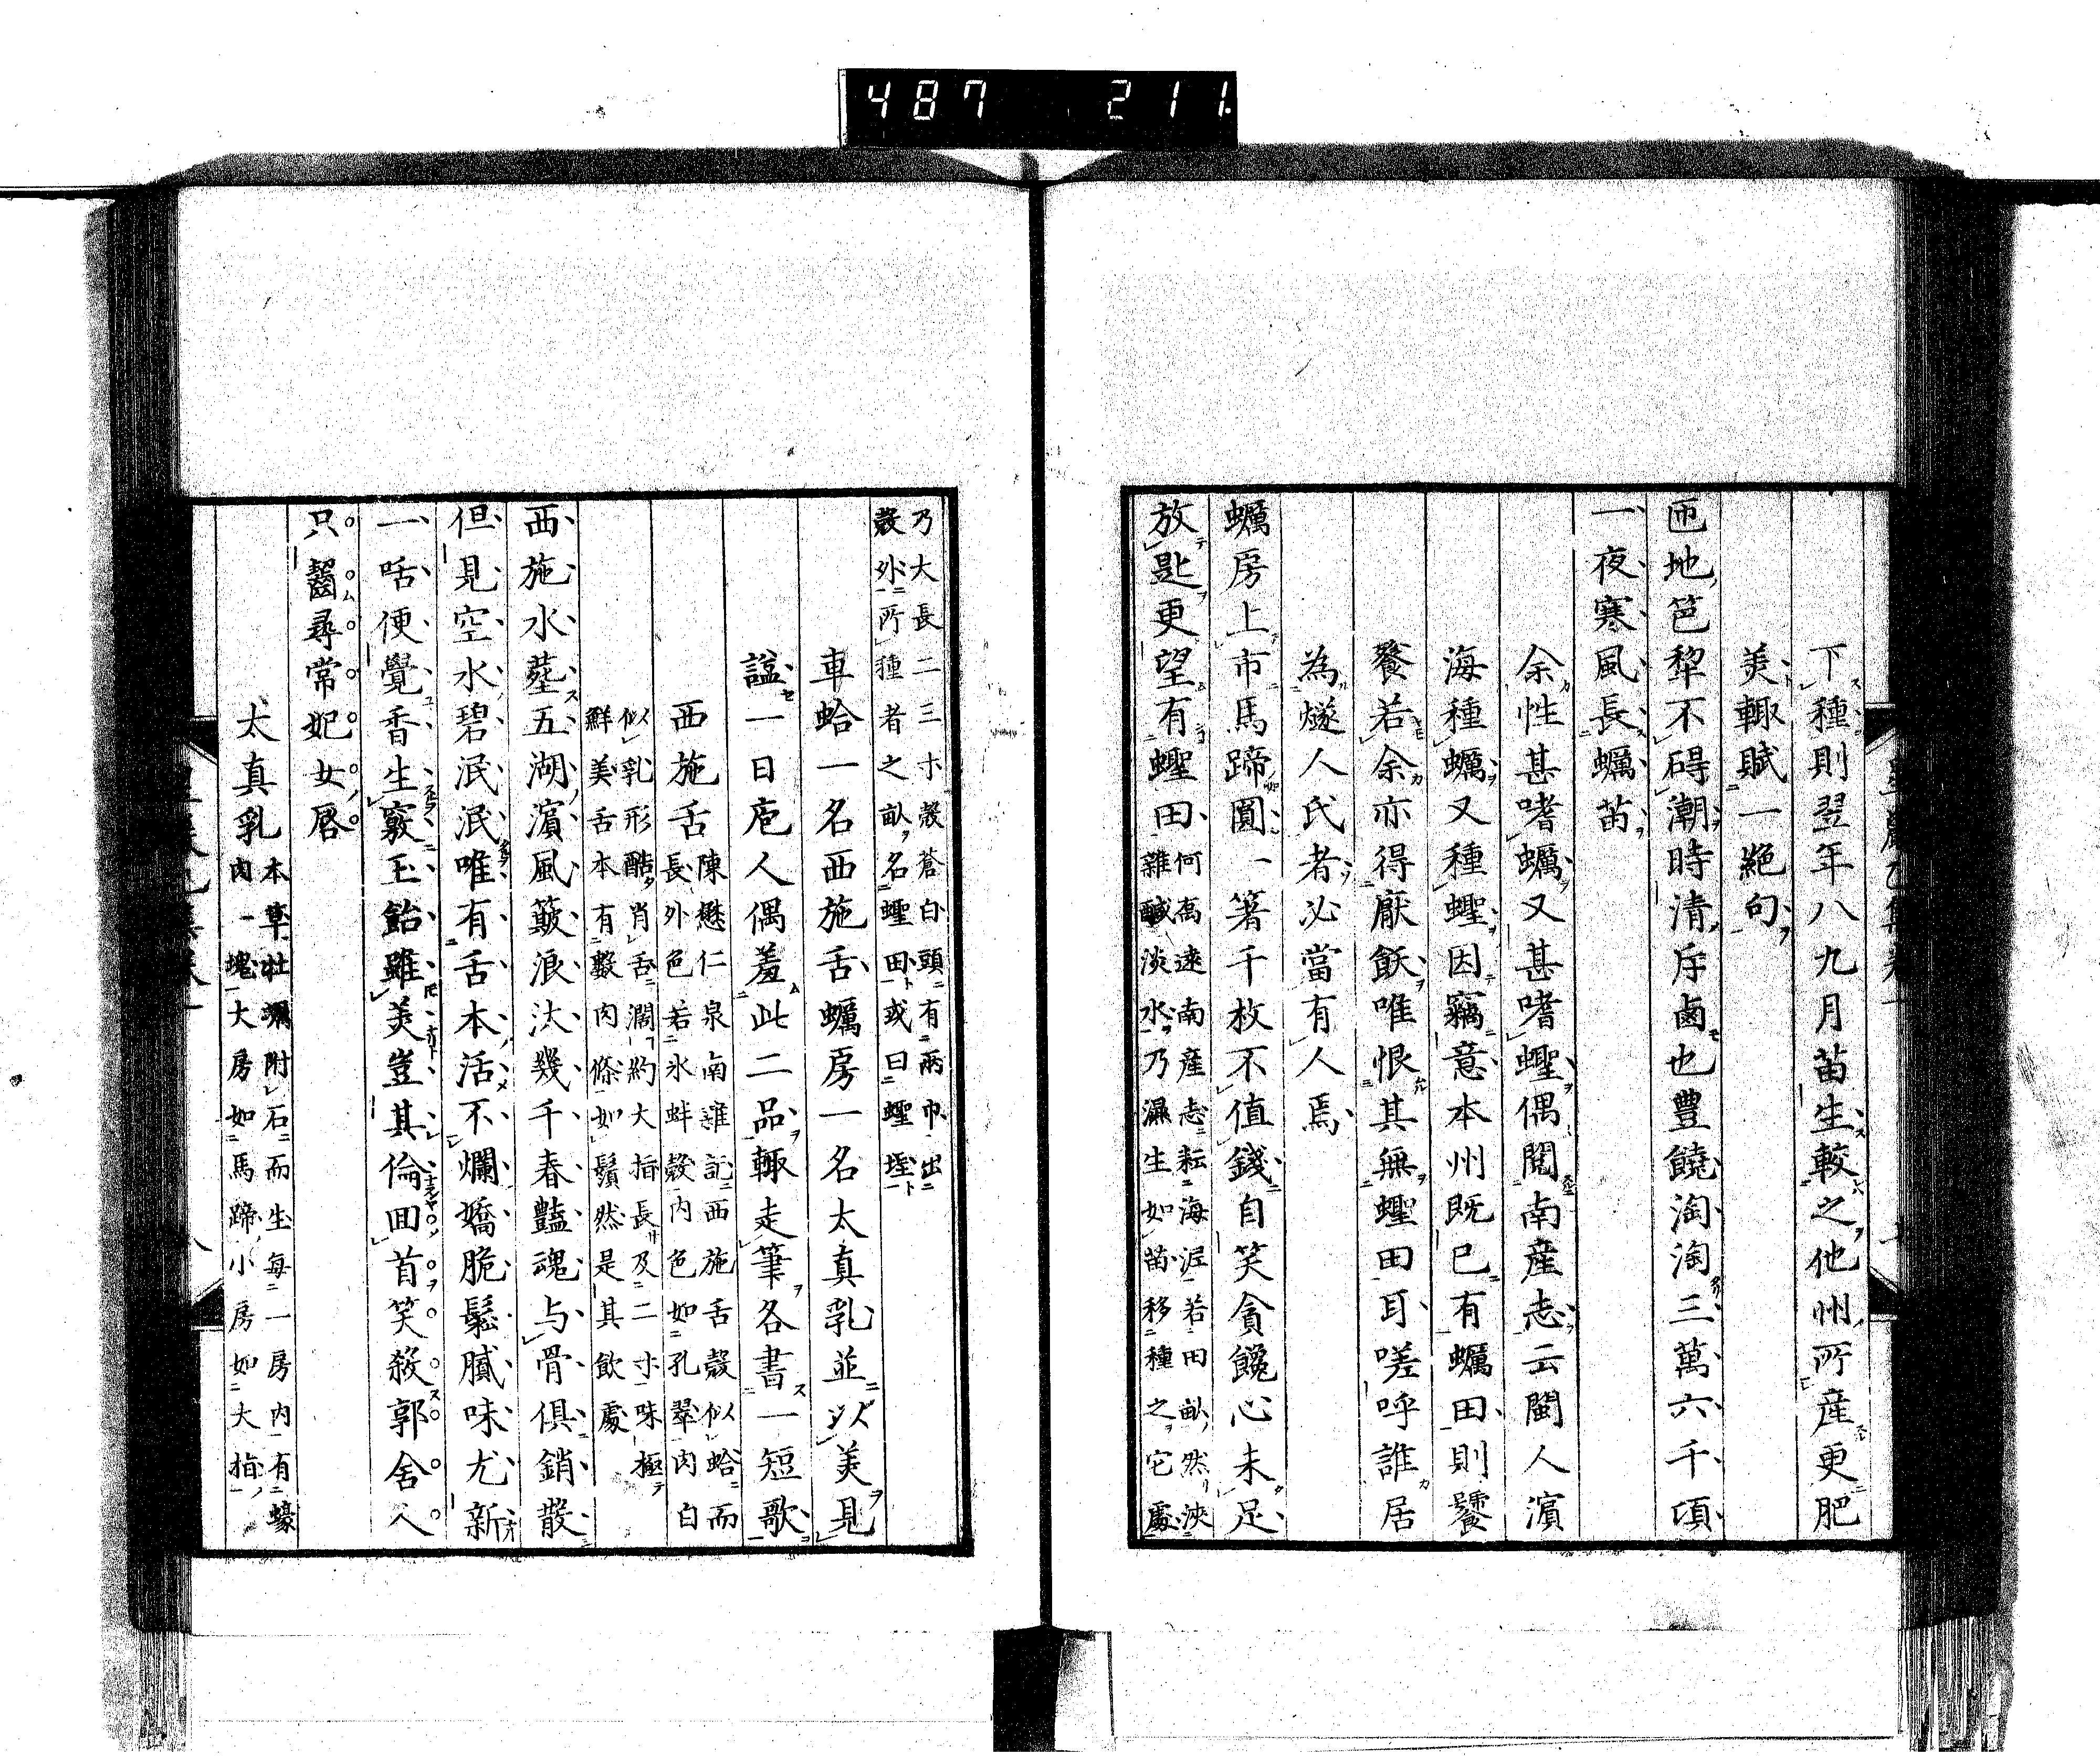 487 211
下種則翌年八九月苗生較之他州所産更肥
美輙賦一絕句
匝地笆犂不碍潮時清斥鹵也豊饒淘淘三萬六千頃
一夜寒風長蠣苗
余性甚嗜蠣又甚嗜蟶偶閱南産志云閩人濵
海種蠣又種蟶因竊意本州既已有蠣田則饕
餮若余亦得厭飫唯恨其無蟶田耳嗟呼誰居
為燧人氏者必當有人焉
蠣房上市馬蹄圓一箸千枚不值錢自笑貪饞心未足
放匙更望有蟶田
何喬遠南産志耘海泥若田畝然浹
雜鹹淡水乃濕生如苗移種之它處
乃大長二三寸殼蒼白頭有兩巾出
殼外所種者之畝名蟶田或曰蟶埕
車蛤一名西施舌蠣房一名太真乳並以美見
謚一日庖人偶羞此二品輙走筆各書一短歌
西施舌
陳懋仁泉南雜記西施舌殼似蛤而
長外色若氷蚌殼内色如孔翠肉白
似乳形酷肖舌濶約大指長及二寸味極
鮮美舌本有數肉條如鬚然是其飲處
西施水葬五湖濵風簸浪汰幾千春豔魂与骨俱銷散
但見空水碧泯泯唯有舌本活不爛嬌脆鬆膩味尤新
一咶便覺香生竅玉飴雖美豈其倫囬首笑殺郭舍人
只齧尋常妃女唇
太真乳
本草牡蠣附石而生每一房内有蠔
肉一塊大房如馬蹄小房如大指
八